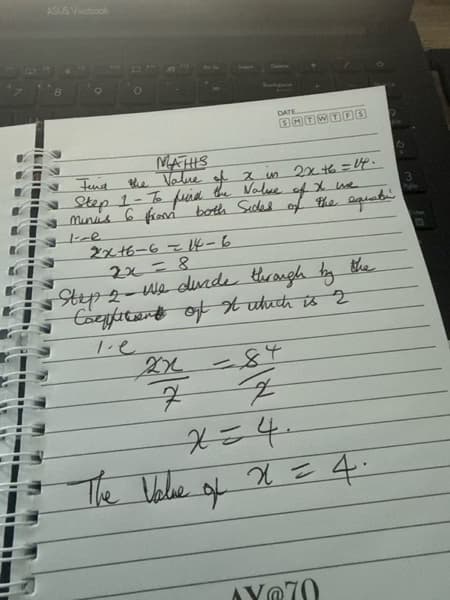 ASUS Vivobook
7 8 9 0
DATE
S M T W T F S
MATHS
Find the Value of x in 2x+6=14.
Step 1 - To find the Value of x we
minus 6 from both sides of the equation
i.e
2x+6-6 = 14-6
2x = 8
Step 2 - We divide through by the
Coefficient of x which is 2
i.e
2x/2 = 8/2 4
x = 4.
The Value of x = 4.
AY@70